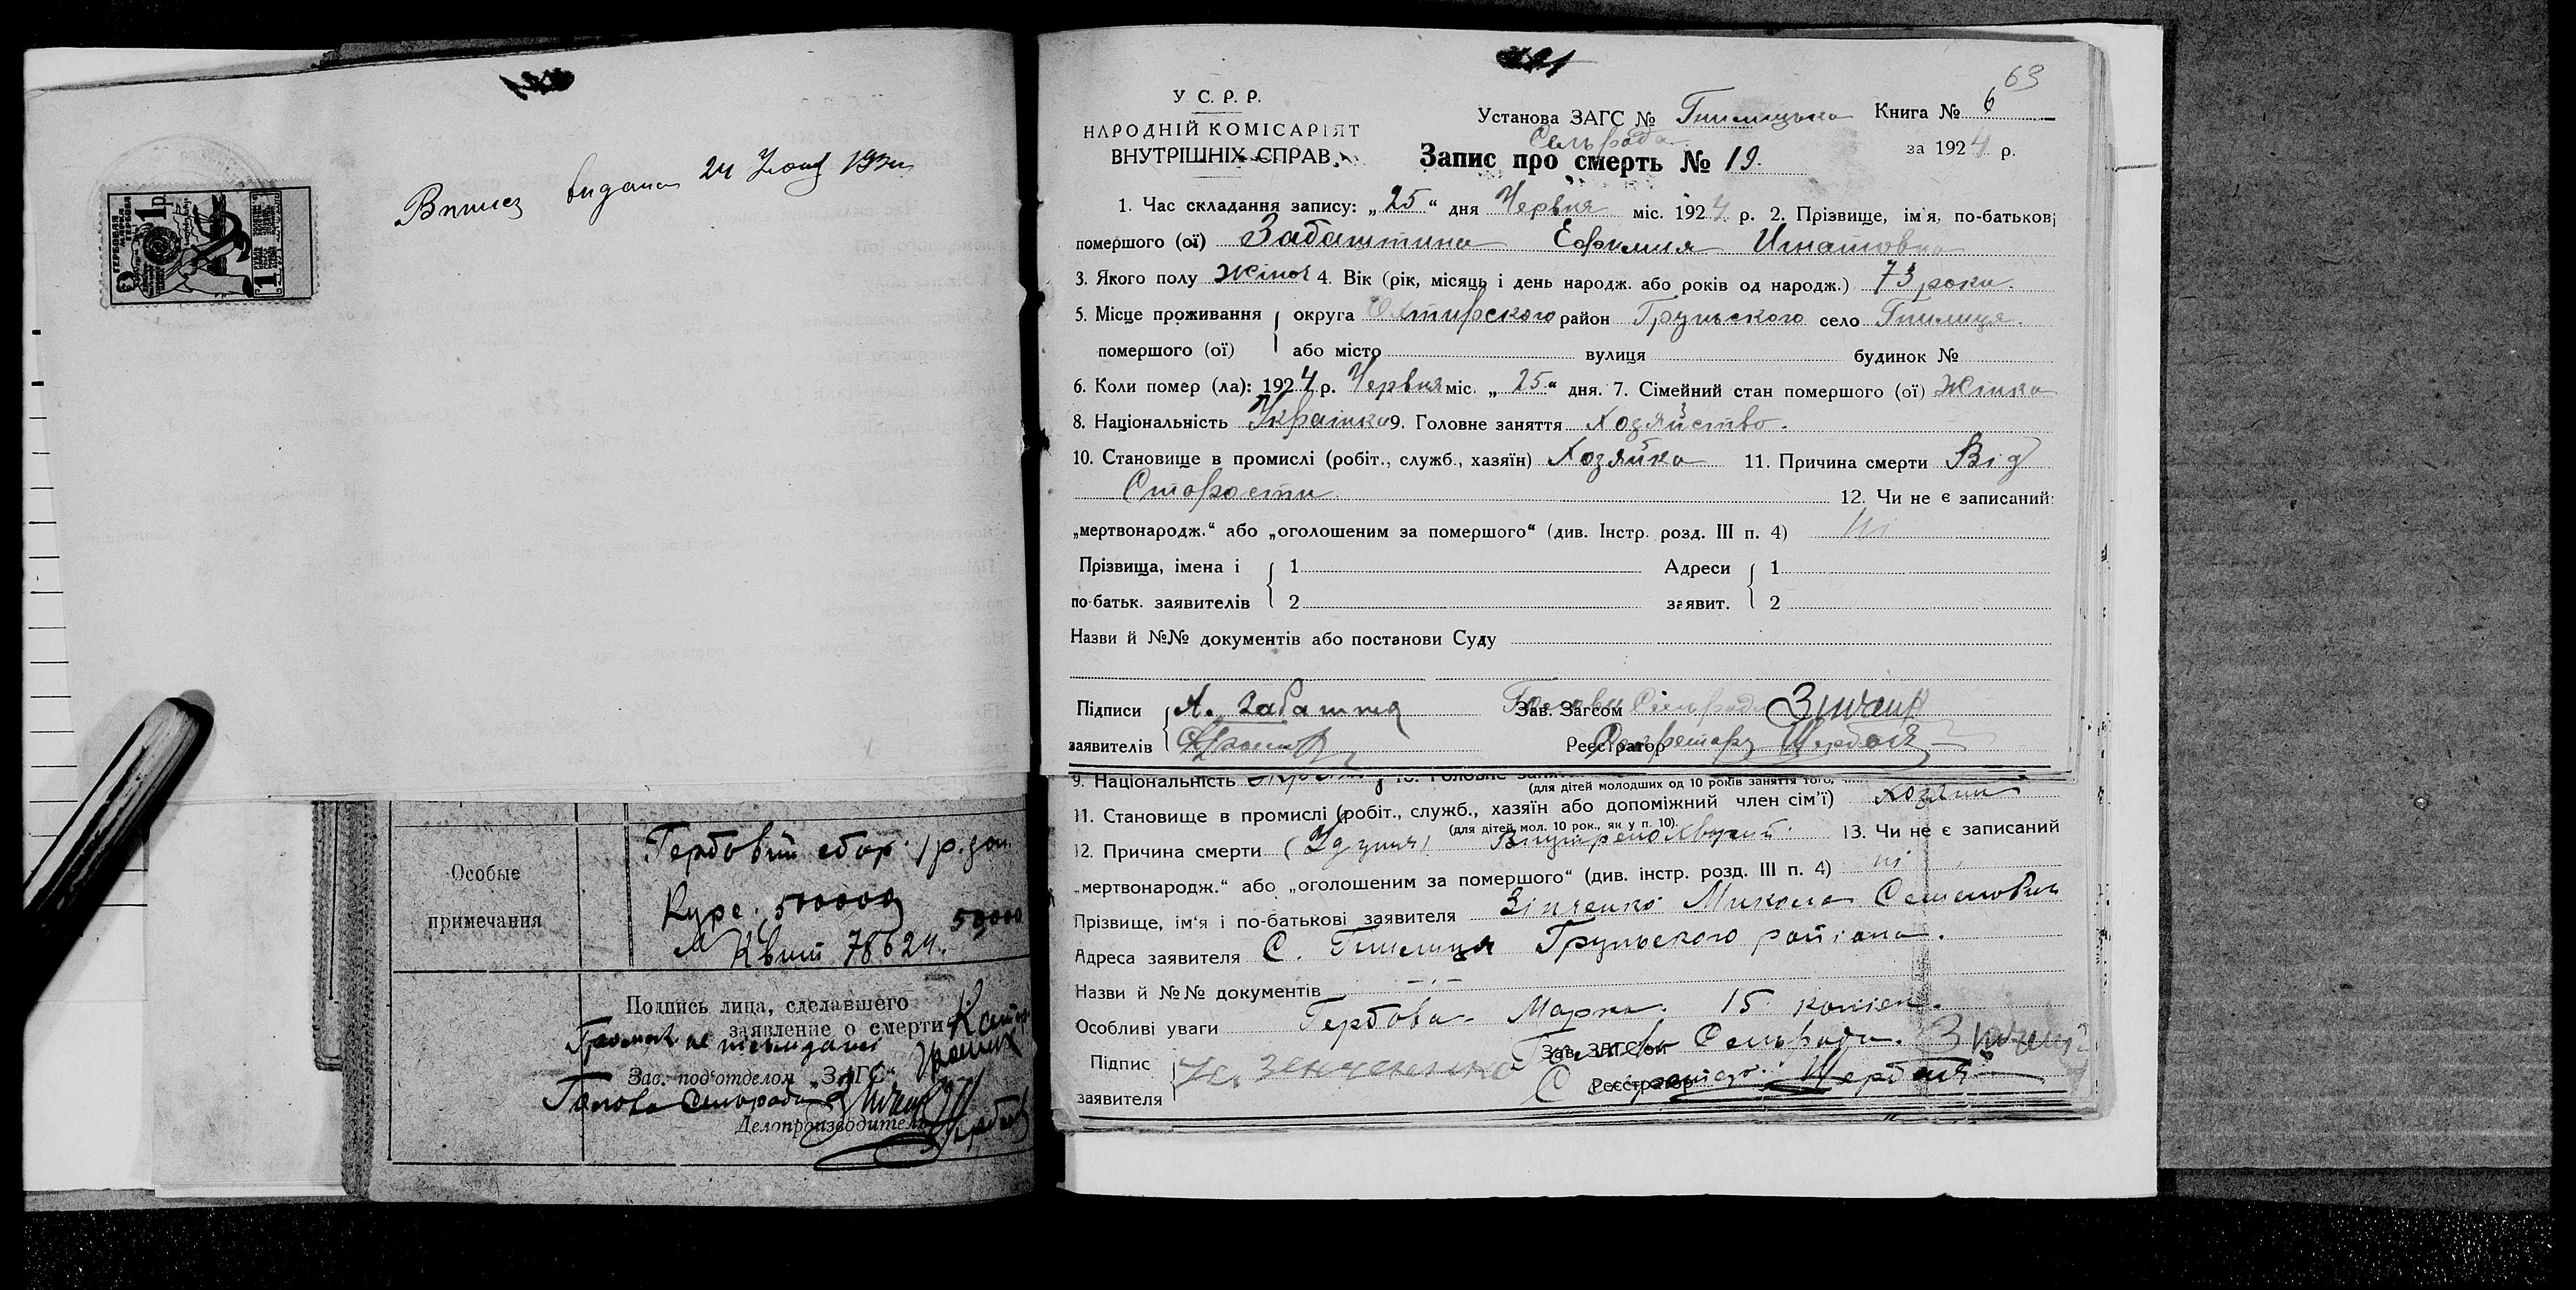 Випись видана 24 1924
ГЕРБОВАЯ МАРКА
1 р.
Особые примечания
Гербовий сбор 1 р. зол.
Курс 500000
50000
Квит 78624.
Подпись лица, сделавшего заявление о смерти
Зав. под'отделом „ЗАГС"
Голова Сельради
Делопроизводитель
63
У С. Р. Р.
НАРОДНІЙ КОМІСАРІЯТ
ВНУТРІШНІХ СПРАВ.
Установа ЗАГС № Гнилицька Сельрада
Книга № 6
за 1924 р.
Запис про смерть № 19.
1. Час складання запису: „25" дня Червня міс. 1924 р. 2. Прізвище, ім'я, по-батькові
помершого (ої) Забаштина Ефимия Игнатовна
3. Якого полу Жіноч 4. Вік (рік, місяць і день народж. або років од народж.) 73 роки.
5. Місце проживання помершого (ої) округа Охтирского район Груньского село Гнилиця.
або місто вулиця будинок №
6. Коли помер (ла): 1924 р. Червня міс. „25" дня. 7. Сімейний стан помершого (ої) Жінка
8. Національність Українка 9. Головне заняття Хозяйство.
10. Становище в промислі (робіт., служб., хазяїн) Хозяйка 11. Причина смерти Від
Старости 12. Чи не є записаний:
„мертвонародж." або „оголошеним за помершого" (див. Інстр. розд. III п. 4) Ні
Прізвища, імена і по-батьк. заявителів 1 2
Адреси заявит. 1 2
Назви й №№ документів або постанови Суду
Підписи заявителів А. Забаштa
Зав. Загсом Голова Сельради
Реєстратор Секретарь Щербак
9. Національність
(для дітей молодших од 10 років заняття того,
11. Становище в промислі (робіт., служб., хазяїн або допоміжний член сім'ї) Хозяин
(для дітей мол. 10 рок., як у п. 10).
12. Причина смерти 13. Чи не є записаний
„мертвонародж." або „оголошеним за помершого" (див. інстр. розд. III п. 4) ні
Прізвище, ім'я і по-батькові заявителя Зінченко Микола Семенович
Адреса заявителя С. Гнилиця Груньского району.
Назви й №№ документів
Особливі уваги Гербова Марка 15 копієк.
Підпис заявителя Н. Зенченко
Зав. ЗАГСом Голова Сельради
Реєстратор Секретарь Щербак